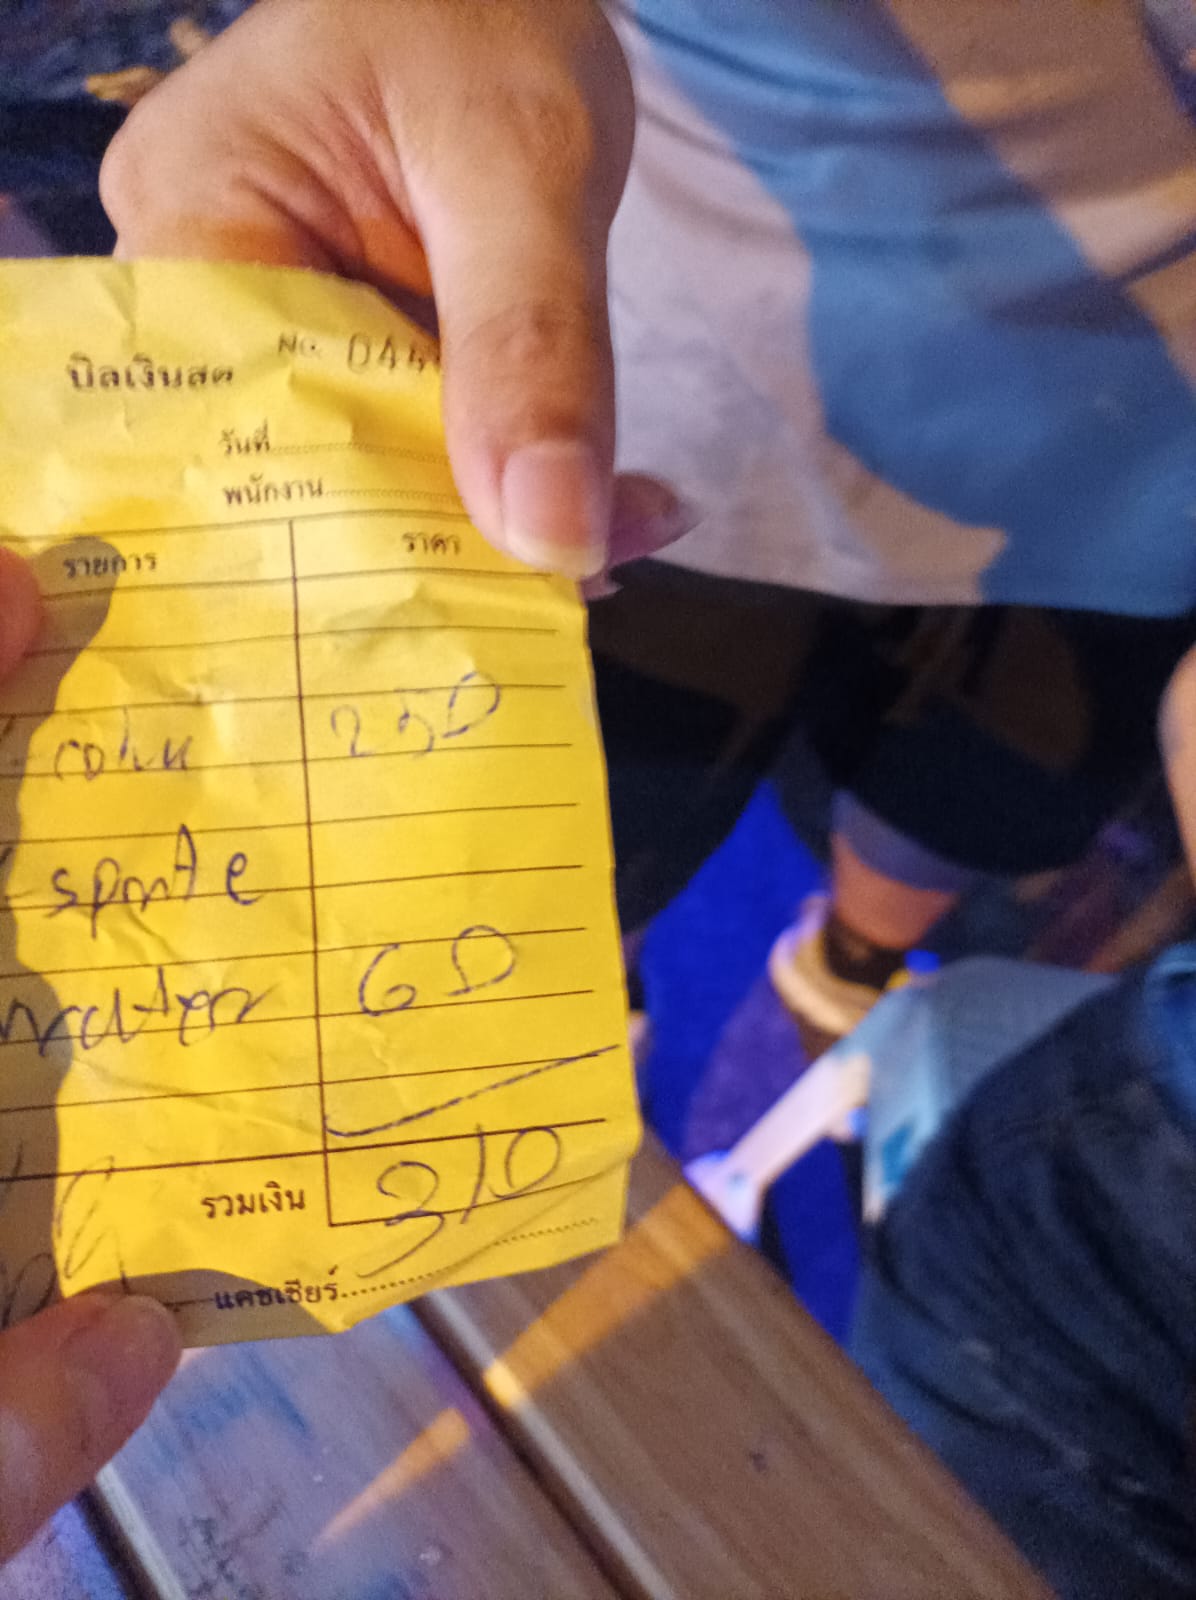 บิลเงินสด No. 044
วันที่
พนักงาน
รายการ ราคา
250
sprite
water 60
รวมเงิน 310
แคชเชียร์